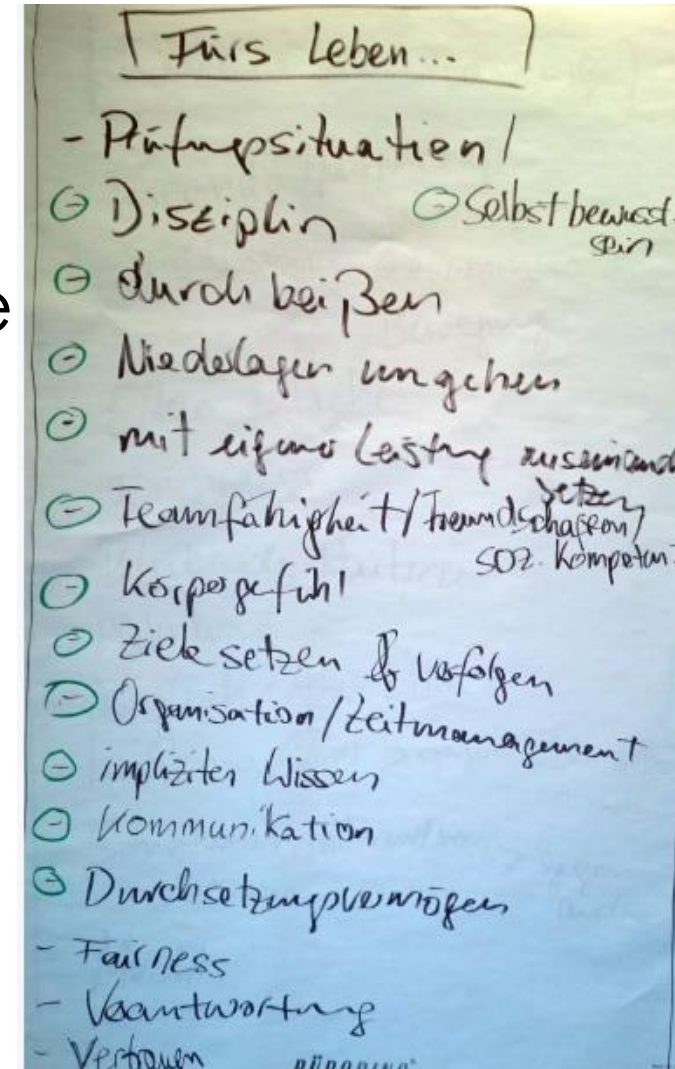 Fürs Leben...
- Prüfungssituation /
- Disziplin
- Selbstbewusst-
sein
- durchbeißen
- Niederlagen umgehen
- mit eigener Leistung auseinand
setzen
- Teamfähigkeit / Freundschaften /
soz. Kompetenz
- Körpergefühl
- Ziele setzen & verfolgen
- Organisation / Zeitmanagement
- implizites Wissen
- Kommunikation
- Durchsetzungsvermögen
- Fairness
- Verantwortung
- Vertrauen
e